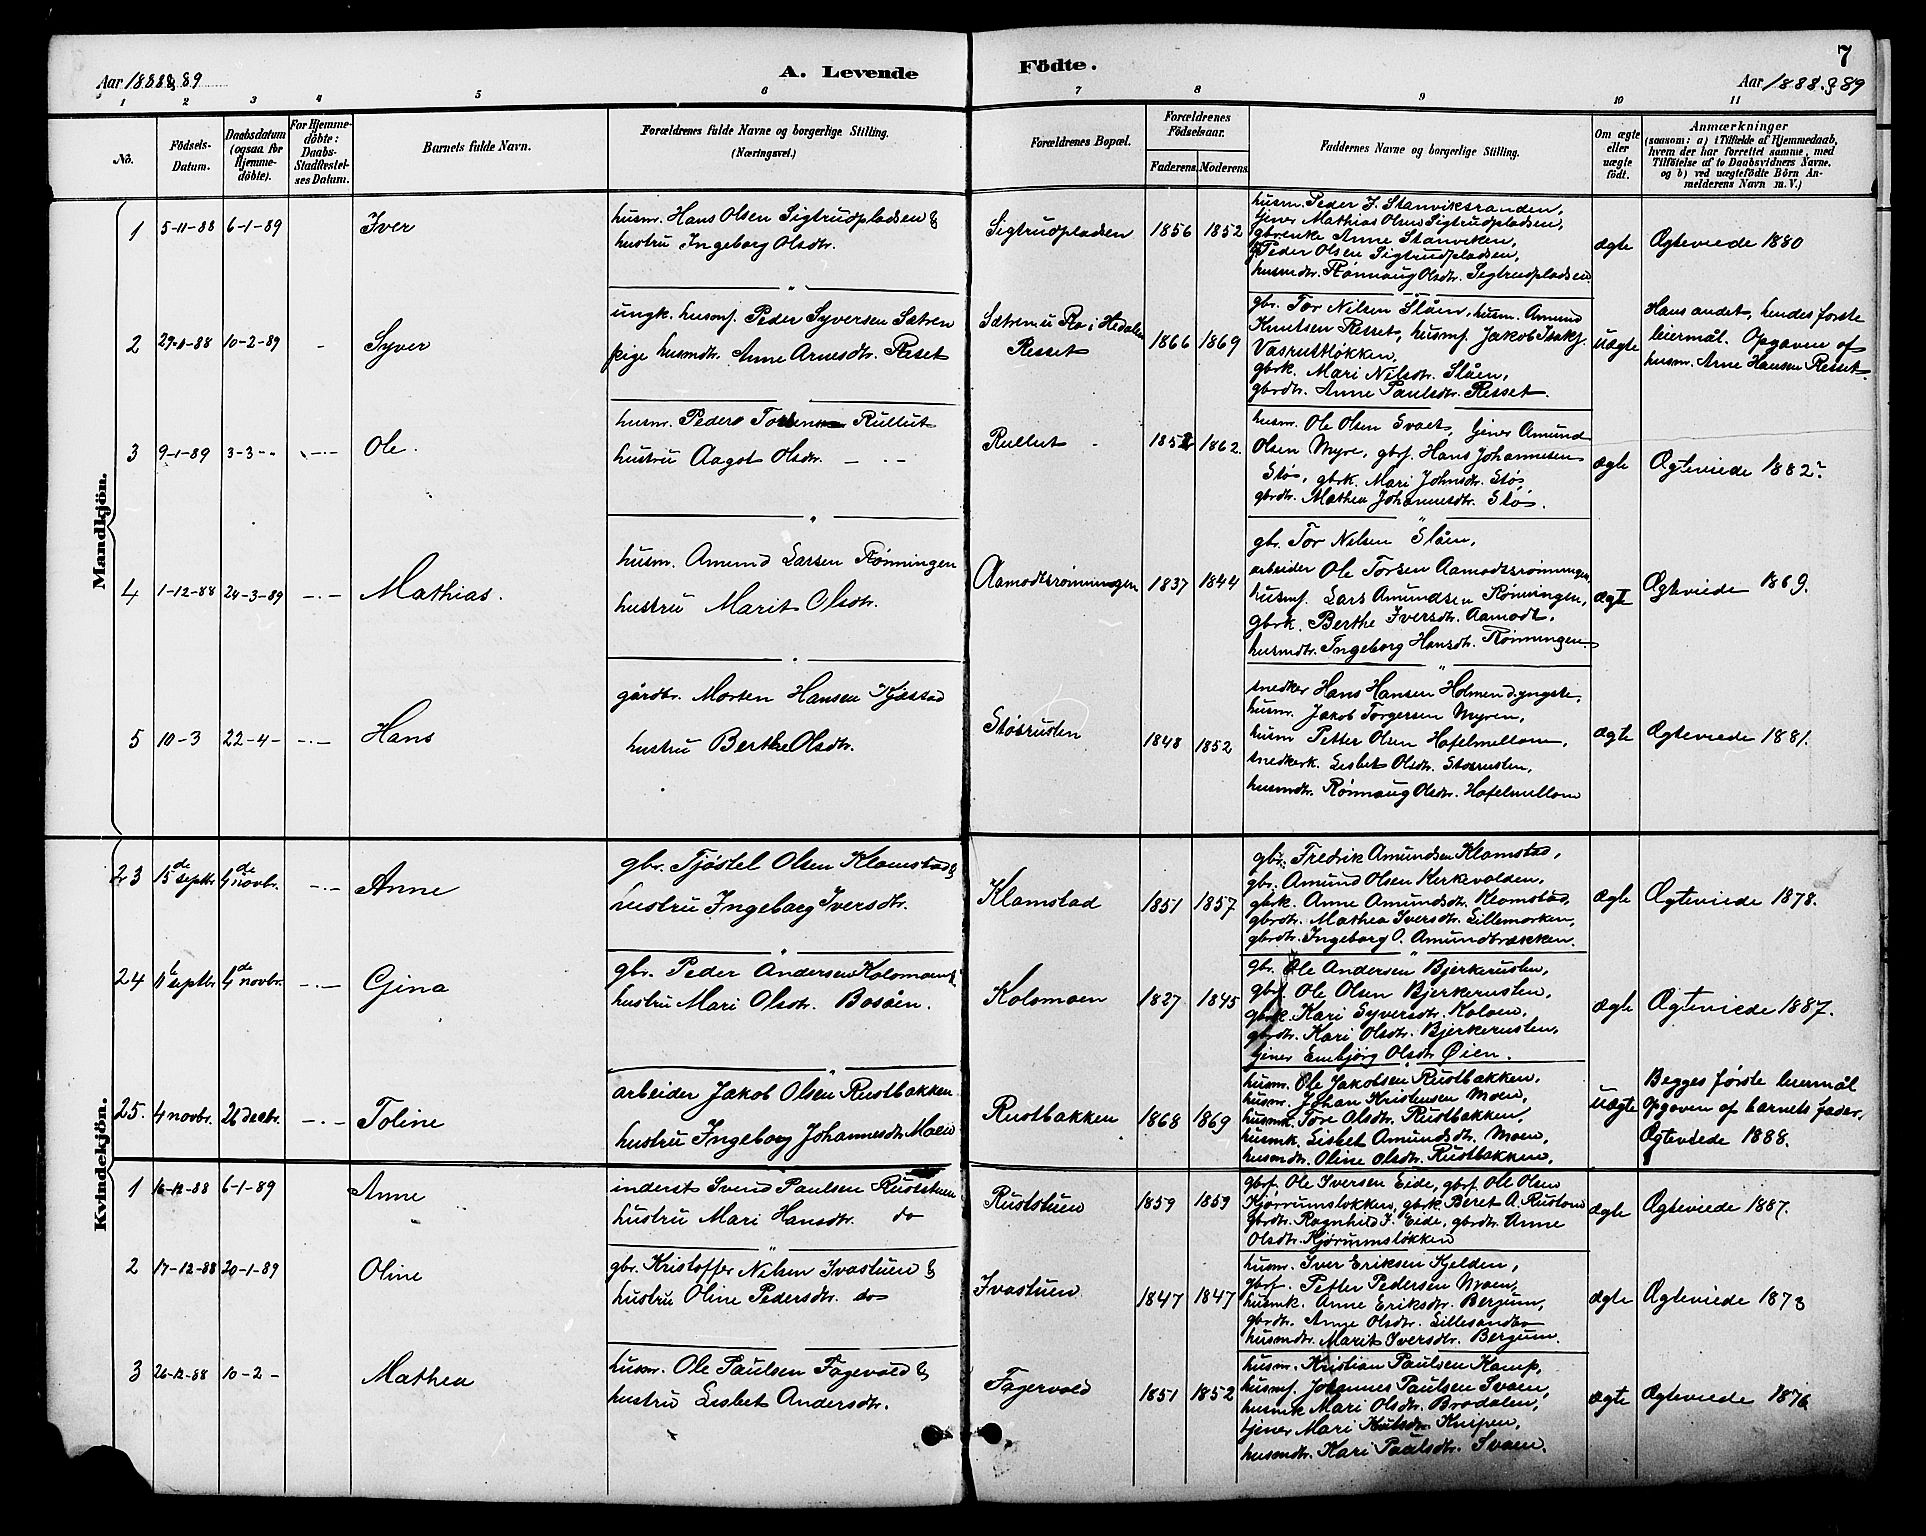 7
Aar 1888 & 89
A. Levende Födte.
Aar 1888 & 89
1 2 3 4 5 6 7 8 9 10 11
No.
Födsels-Datum.
Daabsdatum (ogsaa for Hjemmedöbte).
For Hjemmedöbte: Daabs-Stadfæstelses Datum.
Barnets fulde Navn.
Forældrenes fulde Navne og borgerlige Stilling. (Næringsvei.)
Forældrenes Bopæl.
Forældrenes Födselsaar.
Faderens. Moderens.
Faddernes Navne og borgerlige Stilling.
Om ægte eller uægte födt.
Anmærkninger (saasom: a) i Tilfælde af Hjemmedaab, hvem der har forrettet samme, med Tilföielse af to Daabsvidners Navne, og b) ved uægtefödte Börn Anmelderens Navn m. V.)
Mandkjön.
1 5-11-88 6-1-89 Iver
husm. Hans Olsen Sigtrudpladsen &
hustru Ingeborg Olsdtr.
Sigtrudpladsen 1856 1852
husm. Peder J. Stanviksranden,
tjener Mathias Olsen Sigtrudpladsen,
gbrenke Anne Stanviken,
Peder Olsen Sigtrudpladsen,
husmdtr. Rønnaug Olsdtr. Sigtrudpladsen
ægte Ægteviede 1880
2 10-2-89 - Syver
ungk. husmf. Peder Syversen Sætren
pige husmdtr. Anne Arnesdtr. Resset
Sætren u Ro i Hedalen
Resset 1866 1869
gbr. Tor Nilsen Slåen, husm. Amund
Knutsen Resset, husmf. Jakob Isakf.
Vasrutløkken,
gbrk. Mari Nilsdtr. Slåen,
gbrdtr. Anne Paulsdtr. Resset.
uægte
Hans andet, hendes første
leiermål. Opgaven af
husm. Arne Hansen Resset.
3 9-1-89 3-3-" -"- Ole.
husm. Peder Rullut
hustru Aagot Olsdtr. - " -
Rullut - 1852 1862.
husm. Ole Olsen Svaet, tjener Amund
Olsen Myre, gbrf. Hans Johannesen
Støs, gbrk. Mari Johnsdtr. Støs
gbrdtr. Mathea Johannesdtr. Støs.
ægte Ægteviede 1882.
4 1-12-88 24-3-89 -"- Mathias.
husm. Amund Larsen Rønningen
hustru Marit Olsdtr.
Aamodtsrønningen 1837 1844
gbr. Tor Nilsen Slåen,
arbeider Ole Torsen Aamodtsrønningen,
husmf. Lars Amundsen Rønningen,
gbrk. Berthe Iversdtr. Aamodt,
husmdtr. Ingeborg Hansdtr. Rønningen.
ægte Ægteviede 1869.
5 10-3 22-4- -"- Hans
gårdbr. Morten Hansen Kjæstad
hustru Berthe Olsdtr.
Støsrusten 1848 1852
snedker Hans Hansen Holmen d.yngste,
husm. Jakob Torgersen Myren,
husm Petter Olsen Hofelmellom,
snedkerk. Lisbet Olsdtr. Støsrusten,
husmdtr. Rønnaug Olsdtr. Hofelmellom
ægte Ægteviede 1881.
Kvindekjön.
23 15de septbr. 4de novbr. -"- Anne
gbr. Tjøstel Olsen Klomstad &
hustru Ingeborg Iversdtr.
Klomstad 1851 1857
gbr. Fredrik Amundsen Klomstad,
gbr. Amund Olsen Kirkevolden,
gbrk. Anne Amundsdtr. Klomstad,
gbrdtr. Mathea Iversdtr. Lillemorken,
gbrdtr. Ingeborg O. Amundbrækken.
ægte Ægteviede 1878.
24 septbr. 4de novbr. -"- Gina
gbr. Peder Andersen Kolomoen &
hustru Mari Olsdtr. Bosåen.
Kolsmoen 1827 1845
gbr. Ole Andersen Bjerkerusten,
gbrf. Ole Olsen Bjerkerusten,
gbrk. Kari Syversdtr. Koloen,
gbrdtr. Kari Olsdtr. Bjerkerusten,
tjener Embjørg Olsdtr Øien.
ægte Ægteviede 1887.
25. 4 novbr. 26 decbr. -"- Toline
arbeider Jakob Olsen Rustbakken
hustru Ingeborg Johannesdtr Moen
Rustbakken 1868 1869
husm. Ole Jakobsen Rustbakken,
husm. Johan Kristensen Moen,
husmk. Tore Olsdtr. Rustbakken,
husmk. Lisbet Amundsdtr. Moen,
husmdtr. Oline Olsdtr. Rustbakken,
uægte
Begges første leiermål
Opgaven af barnets fader.
Ægteviede 1888.
1 16-12-88 6-1-89 Anne
inderst Svend Paulsen Ruststuen
hustru Mari Hansdtr. do
Ruststuen 1859 1859
gbrf. Ole Iversen Eide, gbrf. Ole Olsen
Kjørrumsløkken, gbrk. Beret A. Rustand
gbrdtr. Ragnhild I. Eide, gbrdtr. Anne
Olsdtr. Kjørumsløkken
ægte Ægteviede 1887.
2 17-12-88 20-1-89 Oline
gbr. Kristoffer Nilsen Ivastuen &
hustru Oline Pedersdtr. do
Ivastuen 1847 1847
husm. Iver Eriksen Kjelden,
gbrf. Petter Pedersen Moen,
husmk. Anne Eriksdtr. Bergum,
gbrdtr. Anne Olsdtr. Lillesandbo
husmdtr. Marit Iversdtr. Bergum.
ægte Ægteviede 1873
3 26-12-88 10-2- Mathea
husm. Ole Paulsen Fagervold &
hustru Lisbet Andersdtr.
Fagervold 1851 1852
husm. Kristian Paulsen Kamp,
husmf. Johannes Paulsen Svaen,
husmk Mari Olsdtr. Brodalen,
tjener Mari Knipen,
husmdtr. Kari Paulsdtr. Svaen.
ægte Ægteviede 1876